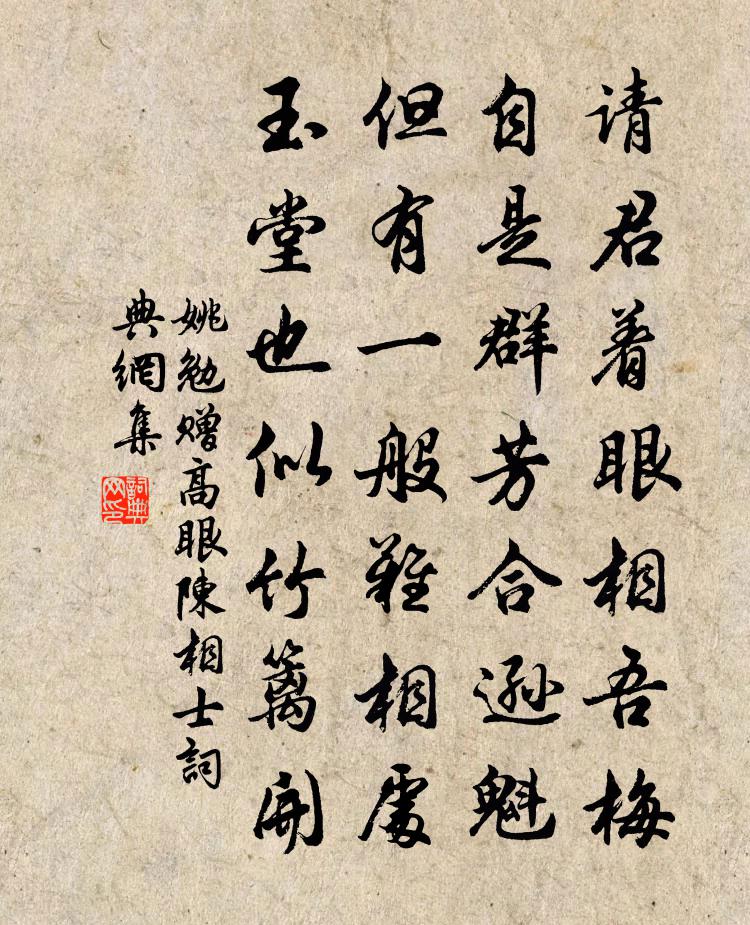 请君着眼相吾梅
自是群芳合逊魁
但有一般难相处
玉堂也似竹篱开
姚勉赠高眼陈相士词
典网集
词典
网印